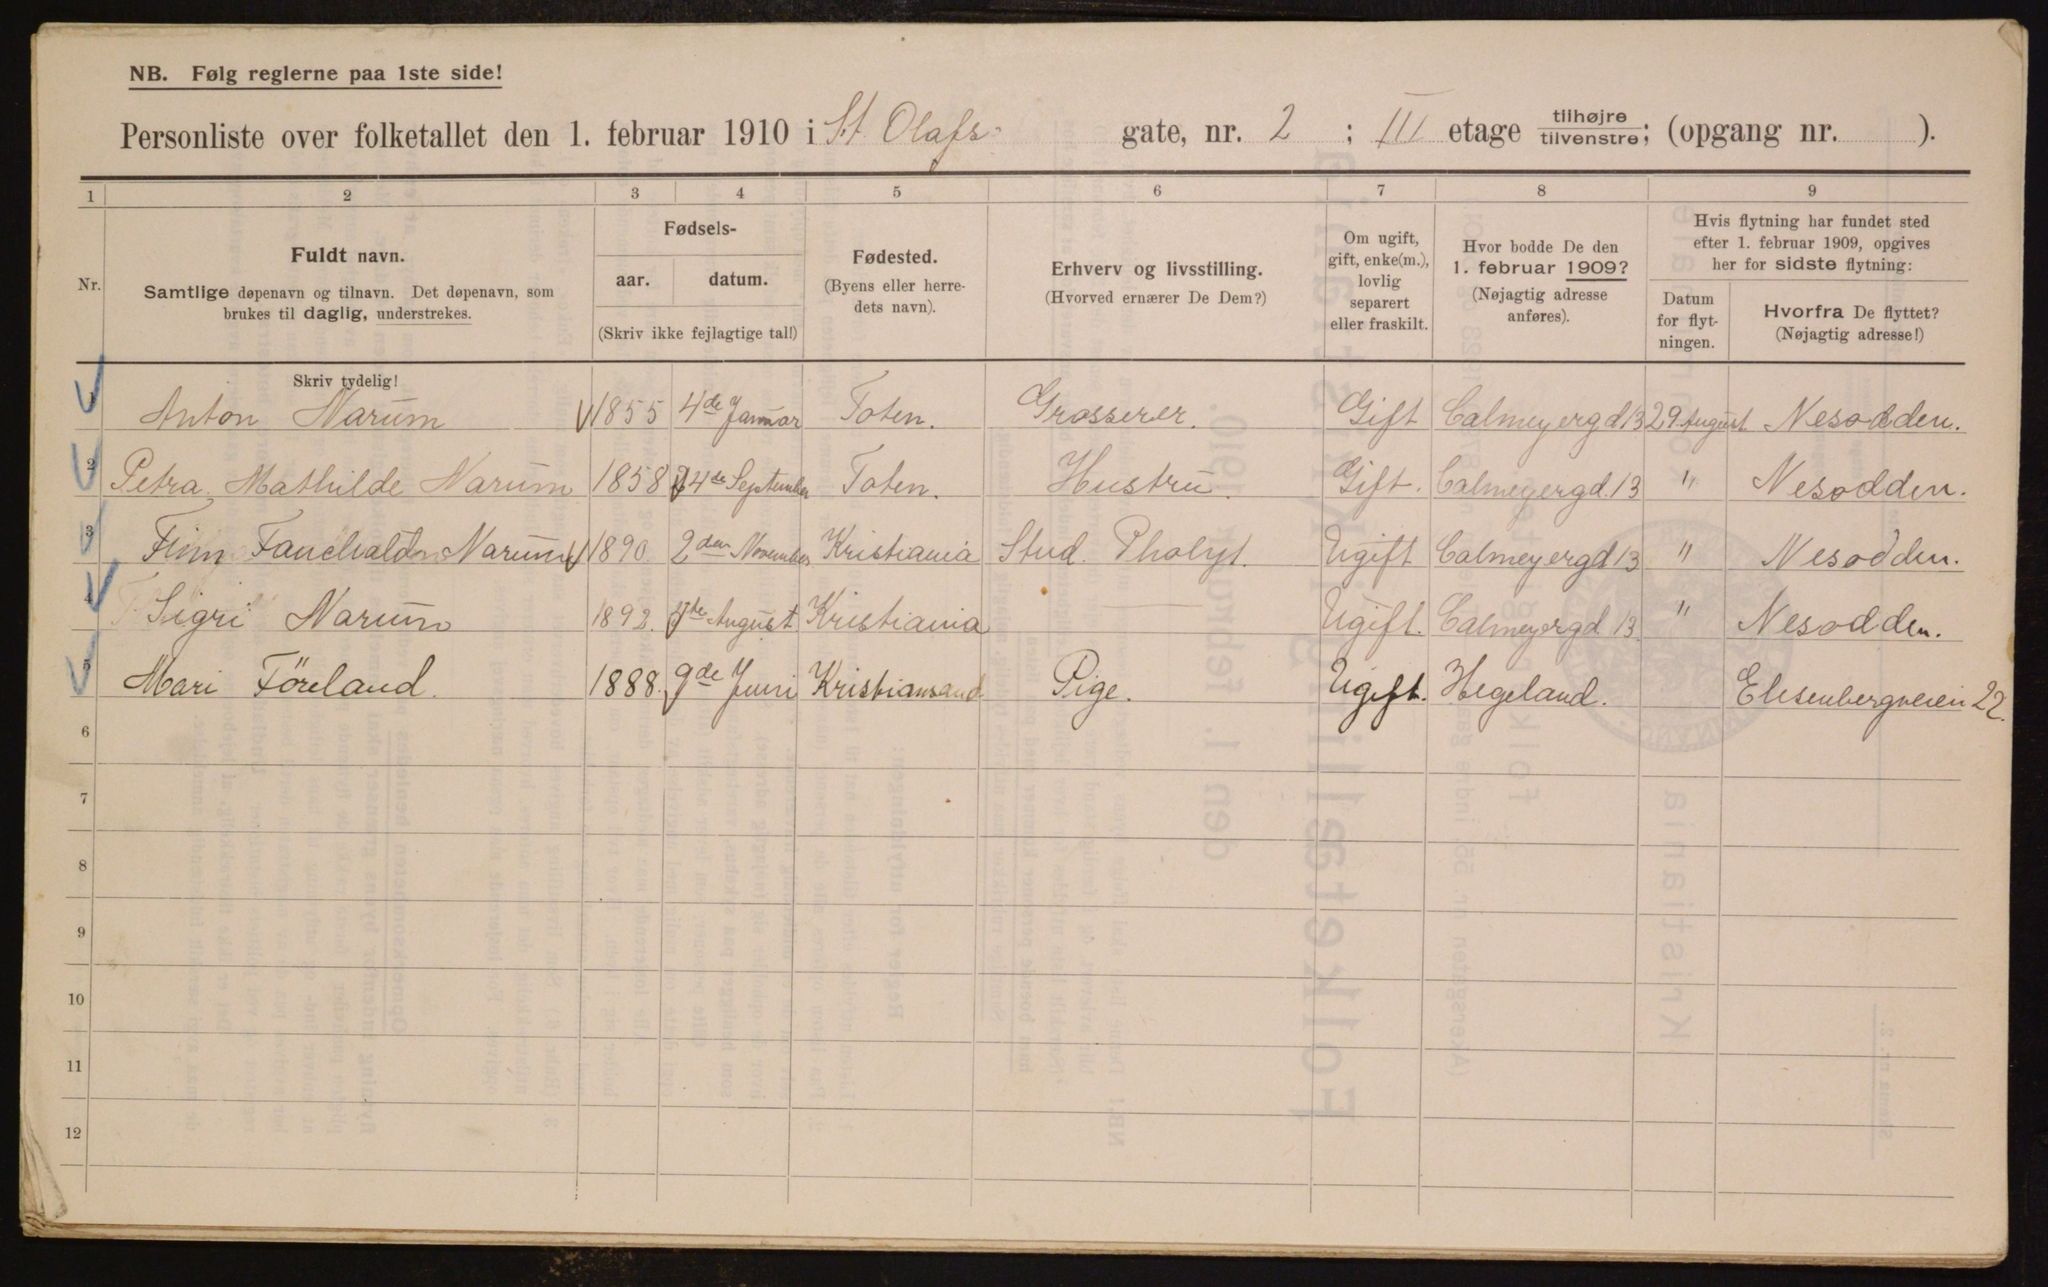 NB. Følg reglerne paa 1ste side!
Personliste over folketallet den 1. februar 1910 i St. Olafs- gate, nr. 2 ; III etage tilhøjre tilvenstre; (opgang nr. ).
1 2 3 4 5 6 7 8 9
Nr.
Fuldt navn.
Samtlige døpenavn og tilnavn. Det døpenavn, som
brukes til daglig, understrekes.
Fødsels-
aar. datum.
(Skriv ikke fejlagtige tal!)
Fødested.
(Byens eller herre-
dets navn).
Erhverv og livsstilling.
(Hvorved ernærer De Dem?)
Om ugift,
gift, enke(m.),
lovlig
separert
eller fraskilt.
Hvor bodde De den
1. februar 1909?
(Nøjagtig adresse
anføres).
Hvis flytning har fundet sted
efter 1. februar 1909, opgives
her for sidste flytning:
Datum
for flyt-
ningen.
Hvorfra De flyttet?
(Nøjagtig adresse!)
Skriv tydelig!
1 Anton Narum 1855 4de Januar Toten. Grosserer. Gift Calmeyergd 13 29 August Nesodden.
2 Petra Mathilde Narum 1858 24de September Toten. Hustru. Gift. Calmeyergd. 13 " Nesodden.
3 Finn Narum 1890. 2den November Kristiania Stud. Ugift Calmeyergd 13 " Nesodden.
4 Sigri Narum 1892. August Kristiania Ugift. Calmeyergd. 13 " Nesodden.
5 Mari Föreland. 1888. 9de Juni Kristiansand Pige. Ugift. Hegeland. Elisenbergveien 22.
6
7
8
9
10
11
12